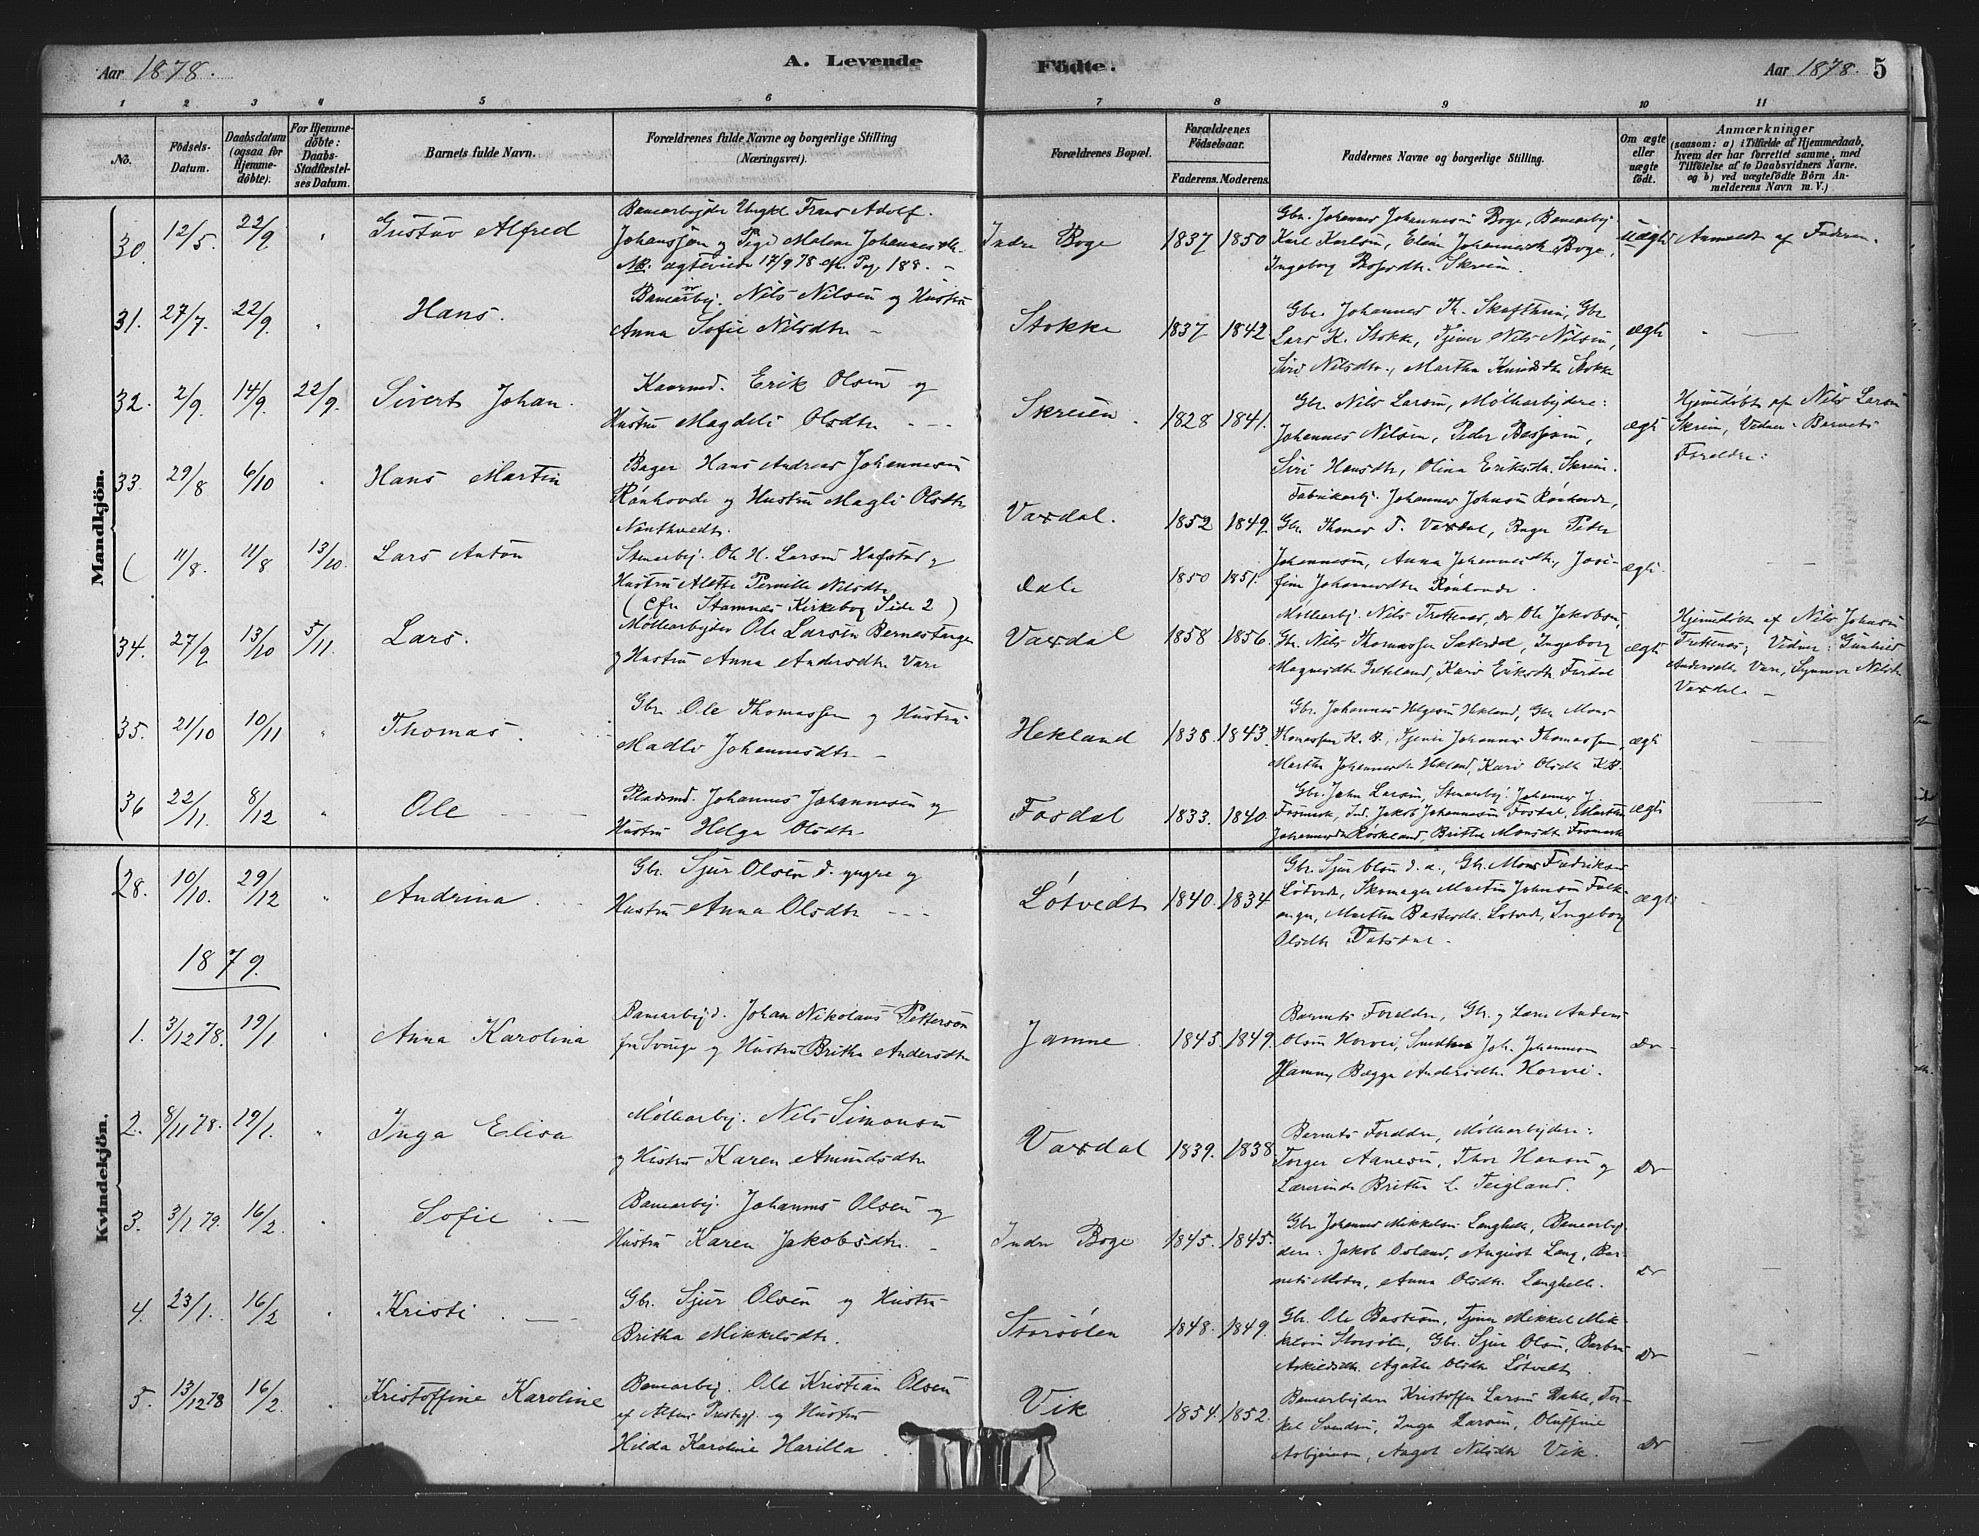 Aar 1878. A. Levende Födte. Aar 1878. 5
1 2 3 4 5 6 7 8 9 10 11
No. Födsels-Datum. Daabsdatum (ogsaa for Hjemme-döbte). For Hjemme-döbte: Daabs-Stadfæstel-ses Datum. Barnets fulde Navn. Forældrenes fulde Navne og borgerlige Stilling (Næringsvei). Forældrenes Bopæl. Forældrenes Födselsaar. Faderens. Moderens. Faddernes Navne og borgerlige Stilling. Om ægte eller uægte födt. Anmærkninger (saasom: a) i Tilfælde af Hjemmedaab, hvem der har forrettet samme, med Tilföielse af to Daabsvidners Navne. og b) ved uægtefödte Börn An-melderens Navn m. V.)
Mandkjön.
30. 12/5. 22/9 " Gustav Alfred
Banearbejder Ungkl Frans Adolf
Johansson og Pige Malene Johannesdt.
NB. ægteviede 17/9 78 cfr. Pag. 188.
Indre Boge 1837 1850
Gbr. Johannes Johannesen Boge, Banearbej
Karl Karlsen, Eline Johannesdt Boge,
Ingeborg Skreien.
Uægte Anmeldt af Faderen.
31. 27/7. 22/9. " Hans.
Banearbej. Nils Nilsen og Hustru
Anna Sofie Nilsdtr
Stokke 1837 1842
Gbr. Johannes Th. Skofthein, Gbr
Lars K. Stokke, Tjener Nils Nilsen,
Siri Nilsdtr., Martha Knudsdtr Stokke
ægte
32. 2/9. 14/9. 22/9. Sivert Johan.
Kaarmd. Erik Olsen og
Hustru Magdeli Olsdtr
Skreien. 1828 1841.
Gbr. Nils Larsen, Møllearbejdere:
Johannes Nilsen, Peder
Siri Hansdtr, Olina Eriksdtr. Skreien.
ægte
Hjemmedöbt af Nils Larsen
Skreien, Vidner: Barnets
Foreldre.
33. 29/8 6/10 " Hans Martin
Bager Hans Andreas Johannesen
Rønhovde og Hustru Magli Olsdtr
Vaxdal. 1852 1849.
Fabrikarbj. Johannes Johnsen Rønhovde,
Gbr. Thomas T. Vaxdal, Bager Peder
Johannesen, Anna Johannesdtr, Josefine Johannesdtr Rønhovde.
( 11/8. 11/8 13/10. Lars Anton
Stenarbej. Ole H. Larsen Hafstad og
Hustru Alette Pernille Nilsdtr
(cfr. Stamnes Kirkebog Side 2)
Dale 1850 1851.
ægte
34. 27/9 13/10 5/11. Lars.
Møllearbejder Ole Larsen Bernestangen
og Hustru Anna Andersdtr Vare
Vaxdal 1858 1856.
Møllearbej. Nils Trettenes, do Ole Jakobsen,
Gbr. Nils Thomassen Sæterdal, Ingeborg
Magnesdtr Helland, Kari Eriksdtr. Fosdal
ægte
Hjemmedöbt af Nils Johnsen
Trettenes, Vidner: Gunhild
Andersdtr Vare, Synneve Nilsdtr
Vaxdal.
35. 21/10 10/11 " Thomas.
Gbr. Ole Thomassen og Hustru
Madli Johannesdtr.
Hekland 1838. 1843.
Gbr. Johannes Helgesen Hekland, Gbr Mons
Thomassen, Tjener Johannes Thomassen,
Martha Johannesdtr Hekland, Kari Olsdtr
ægte
36 22/11. 8/12 " Ole
Pladsmd. Johannes Johannesen og
Hustru Helga Olsdtr.
Fosdal 1833. 1840.
Gbr. John Larsen, Stenarbej. Johannes J.
Fosmark, Ind. Jakob Johannesen Fosdal, Martha
Johannesdtr Røskeland, Britha Monsdtr Fosmark
ægte
Kvindekjön.
28. 10/10. 29/12 " Andrina.
Gbr. Sjur Olsen d. yngre og
Hustru Anna Olsdtr
Løtvedt 1840. 1834
Gbr. Sjur Olsen d. æ., Gbr. Mons Fredriksen
Løtvedt, Skomager Martin Johnsen
Martha Løtvedt, Ingeborg
Olsdtr
ægte
1879.
1. 3/12 78. 19/1 " Anna Karolina
Banearbejd. Johan Nikolaus Petterson
fra Sverige og Hustru Britha Andersdtr
Jamne. 1845. 1849.
Barnets Foreldre, Gbr. og Lars Anders
Olsen Horvei, Joh. Johannesen
Hamre, Bægga Andersdtr. Horvei.
Do
2. 8/11 78. 19/1. " Inga Elisa
Møllearbej. Nils Simonsen
og Hustru Karen Amundsdtr
Vaxdal 1839. 1838
Barnets Foreldre, Møllearbejdere:
Torger Aanesen, Thor Hansen og
Lærerinde Britha L. Teigland.
Do
3. 3/1 79. 16/2 " Sofie
Banearbej. Johannes Olsen og
Hustru Karen Jakobsdtr.
Indre Boge 1845. 1845.
Gbr. Johannes Mikkelsen Langhelle, Banearbej-
dere: Jakob Osland, August Lang, Bar-
nets Moder, Anna Olsdtr. Langhelle.
Do
4. 23/1. 16/2 " Kristi.
Gbr. Sjur Olsen og Hustru
Britha Mikkelsdtr.
Storsölen 1848. 1849.
Gbr. Ole Bastesen, Tjener Mikkel Mik-
kelsen Storsölen, Gbr. Sjur Olsen, Barbro
Askildsdtr. Agathe Olsdtr Løtvedt
Do
5. 13/12 78 16/2. " Kristoffine Karoline
Banearbej. Ole Kristian Olsen
af og Hustru
Hilda Karoline Harilla
Vik 1854. 1852.
Banearbejdere Kristoffer Larsen Dahle, Tor-
kel Svendsen, Inga Larsen, Oluffine
Asbjørnsen, Aagot Nilsdtr Vik.
Do